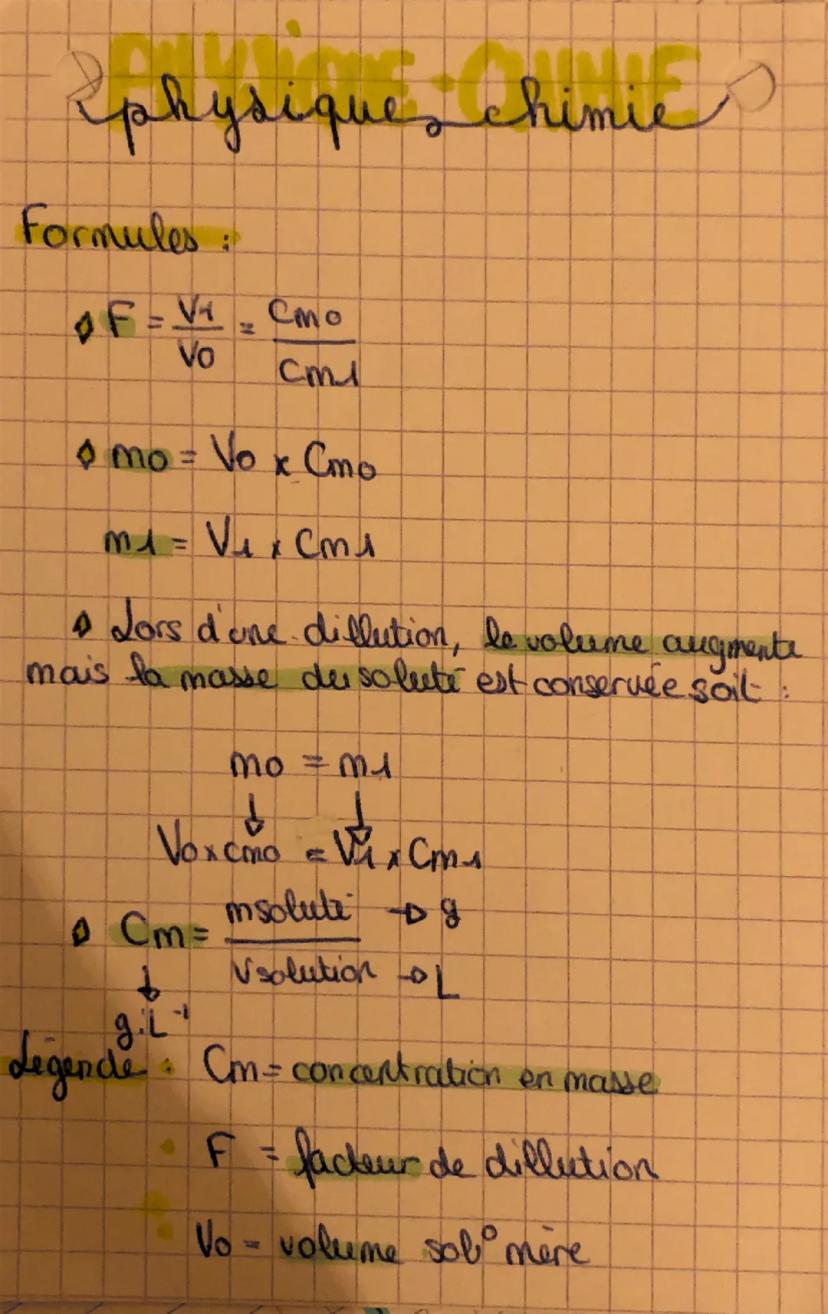 PHYSIQUE-CHIMIE
physique chimie
Formules :
F = V1/V0 = Cm0/Cm1
m0 = V0 x Cm0
m1 = V1 x Cm1
Lors d'une dillution, le volume augmente
mais la masse du soluté est conservée soit :
m0 = m1
↓ ↓
V0 x cm0 = V1 x Cm1
Cm = msoluté/Vsolution → g → L
↓
g.L⁻¹
Légende : Cm = concentration en masse
F = facteur de dillution
V0 = volume sol° mère